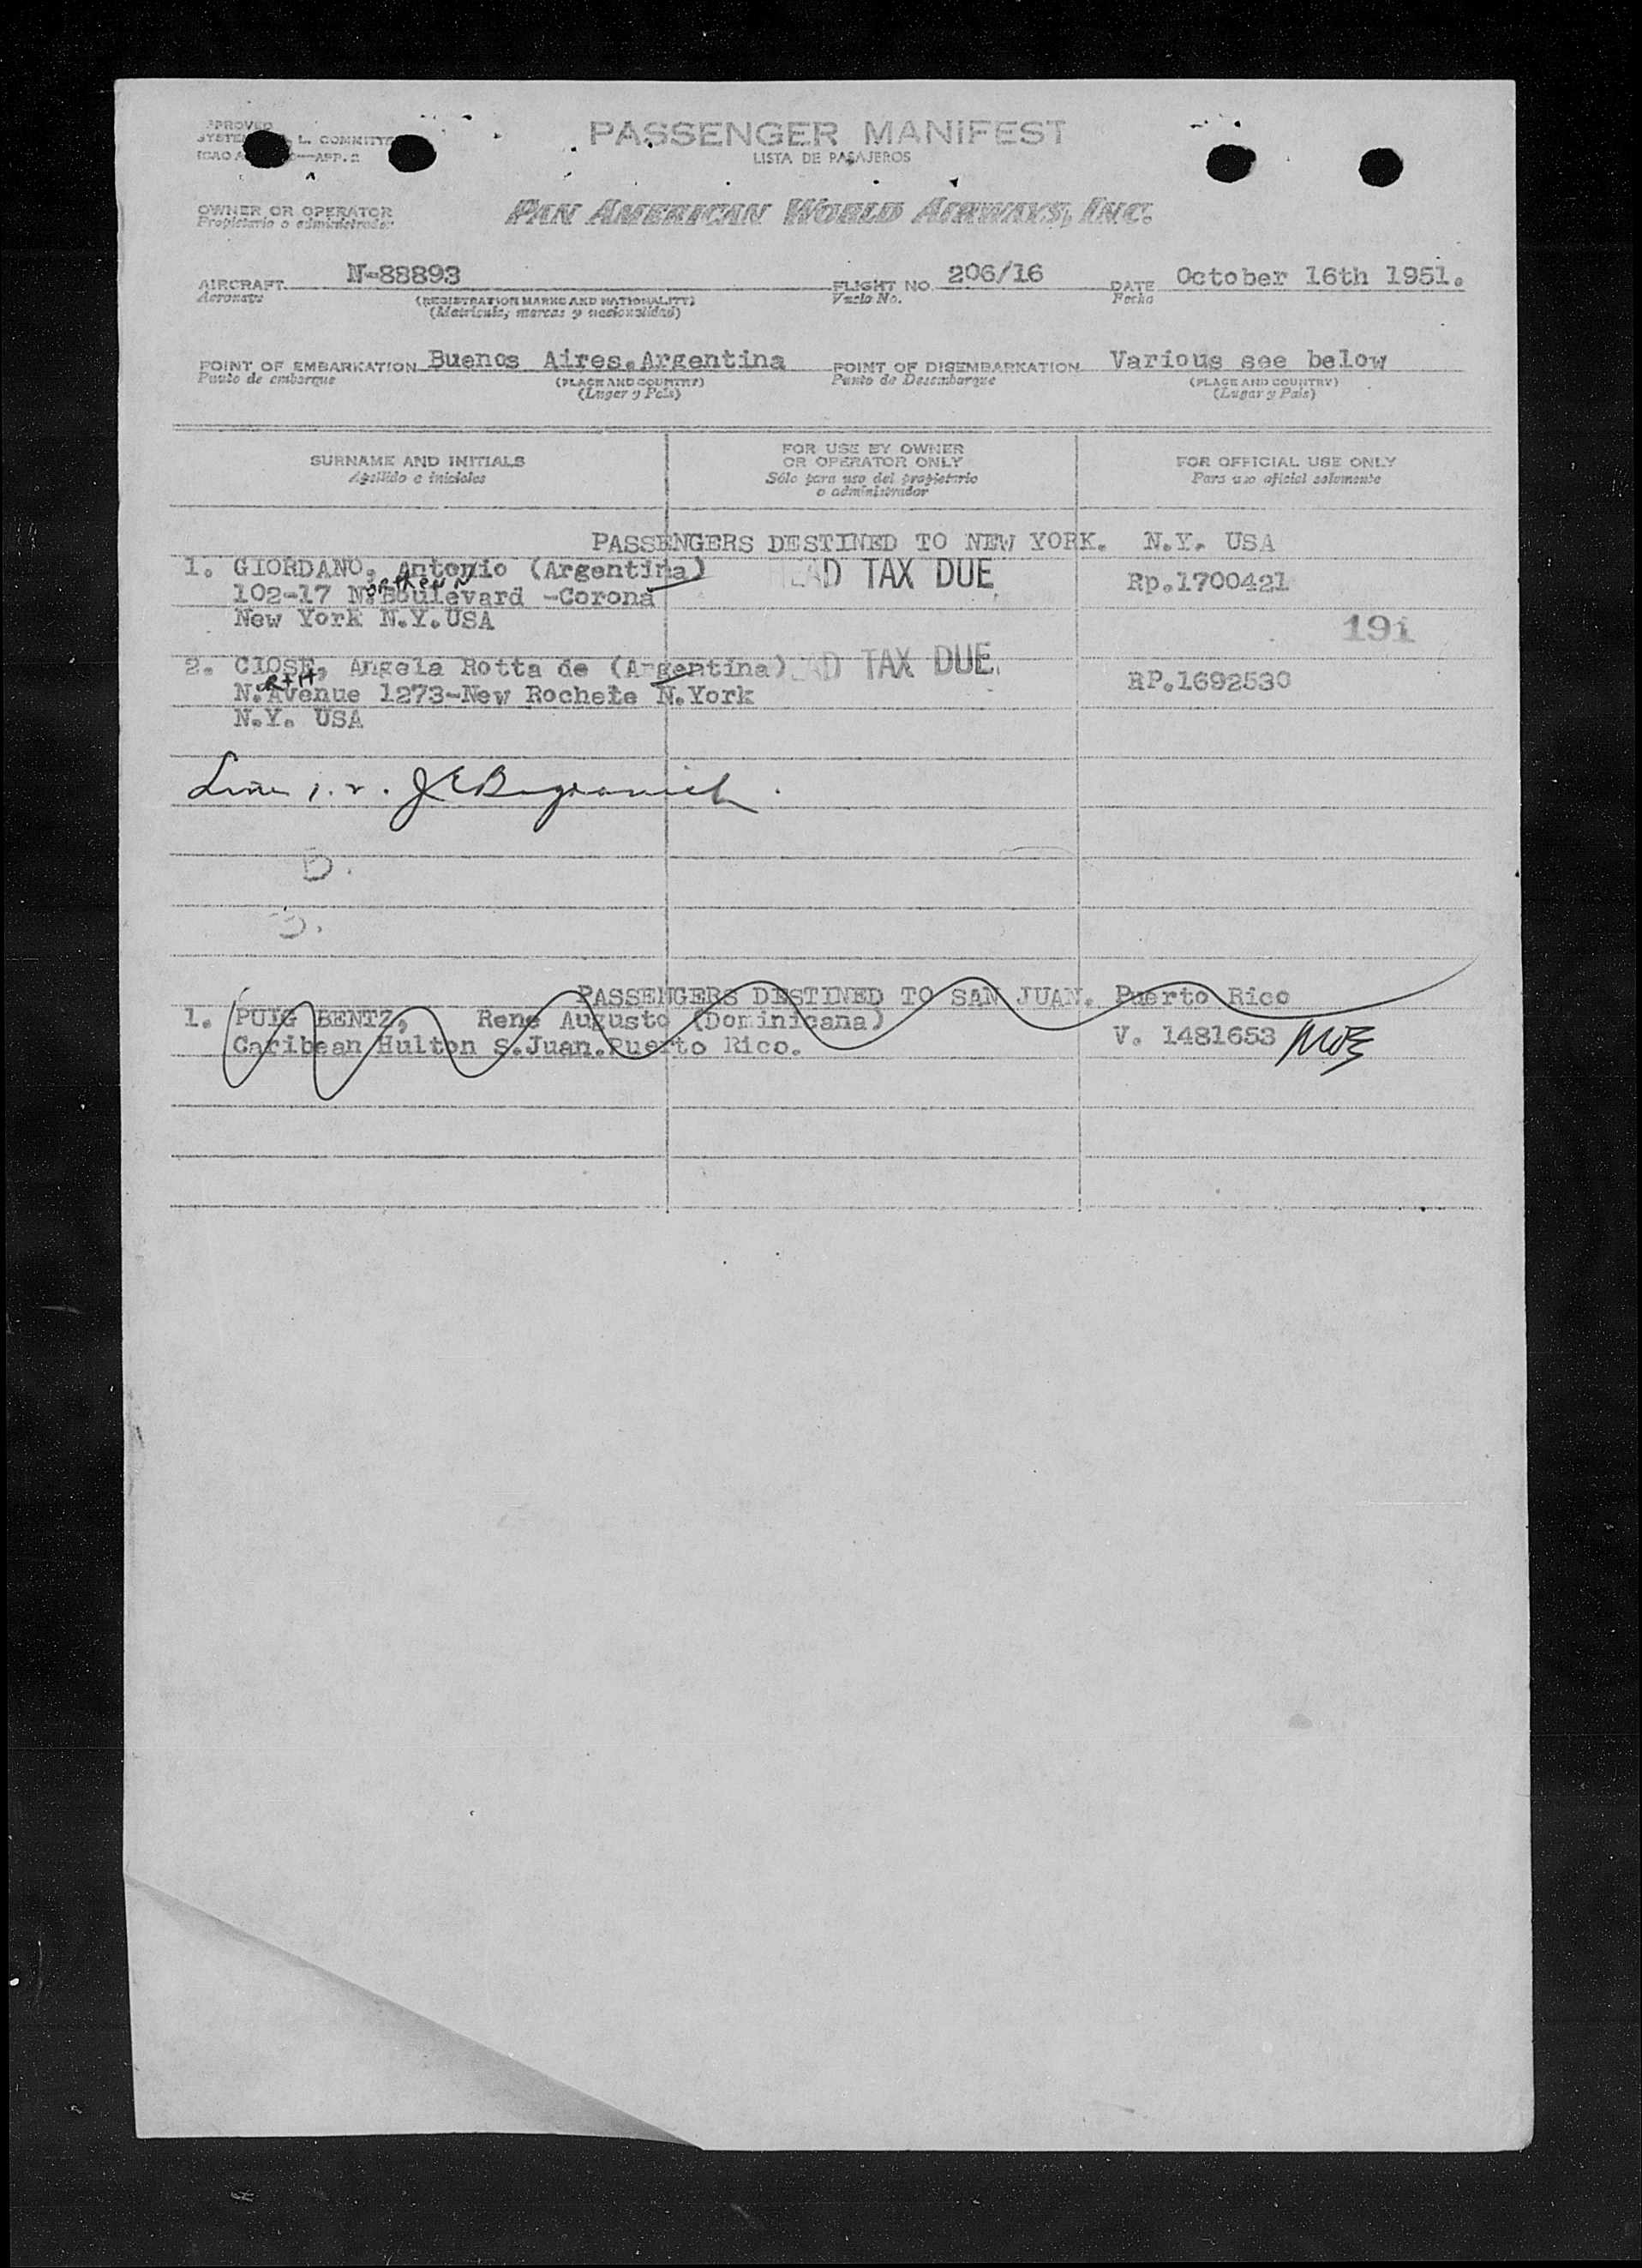 PASSENGER MANIFEST
LISTA DE PASAJEROS
OWNER OR OPERATOR
Propietario o administrador
PAN AMERICAN WORLD AIRWAYS, INC.
AIRCRAFT N-88893 FLIGHT NO. 206/16 DATE October 16th 1951.
Aeronave (REGISTRATION MARKS AND NATIONALITY) Vuelo No. Fecha
(Matricula, marcas y nacionalidad)
POINT OF EMBARKATION Buenos Aires.Argentina POINT OF DISEMBARKATION Various see below
Punto de embarque (PLACE AND COUNTRY) Punto de Desembarque (PLACE AND COUNTRY)
(Lugar y Pais) (Lugar y Pais)
SURNAME AND INITIALS FOR USE BY OWNER OR OPERATOR ONLY FOR OFFICIAL USE ONLY
Apellido e iniciales Sólo para uso del propietario o administrador Para uso oficial solamente
PASSENGERS DESTINED TO NEW YORK. N.Y. USA
1. GIORDANO, Antonio (Argentina) HEAD TAX DUE Rp.1700421
102-17 N.Boulevard -Corona
New York N.Y.USA 191
2. CIOSE, Angela Rotta de (Argentina) HEAD TAX DUE RP.1692530
N.Avenue 1273-New Rochete N.York
N.Y. USA
PASSENGERS DESTINED TO SAN JUAN. Puerto Rico
1. PUIG BENTZ, Rene Augusto (Dominicana) V. 1481653
Caribean Hulton S.Juan.Puerto Rico.